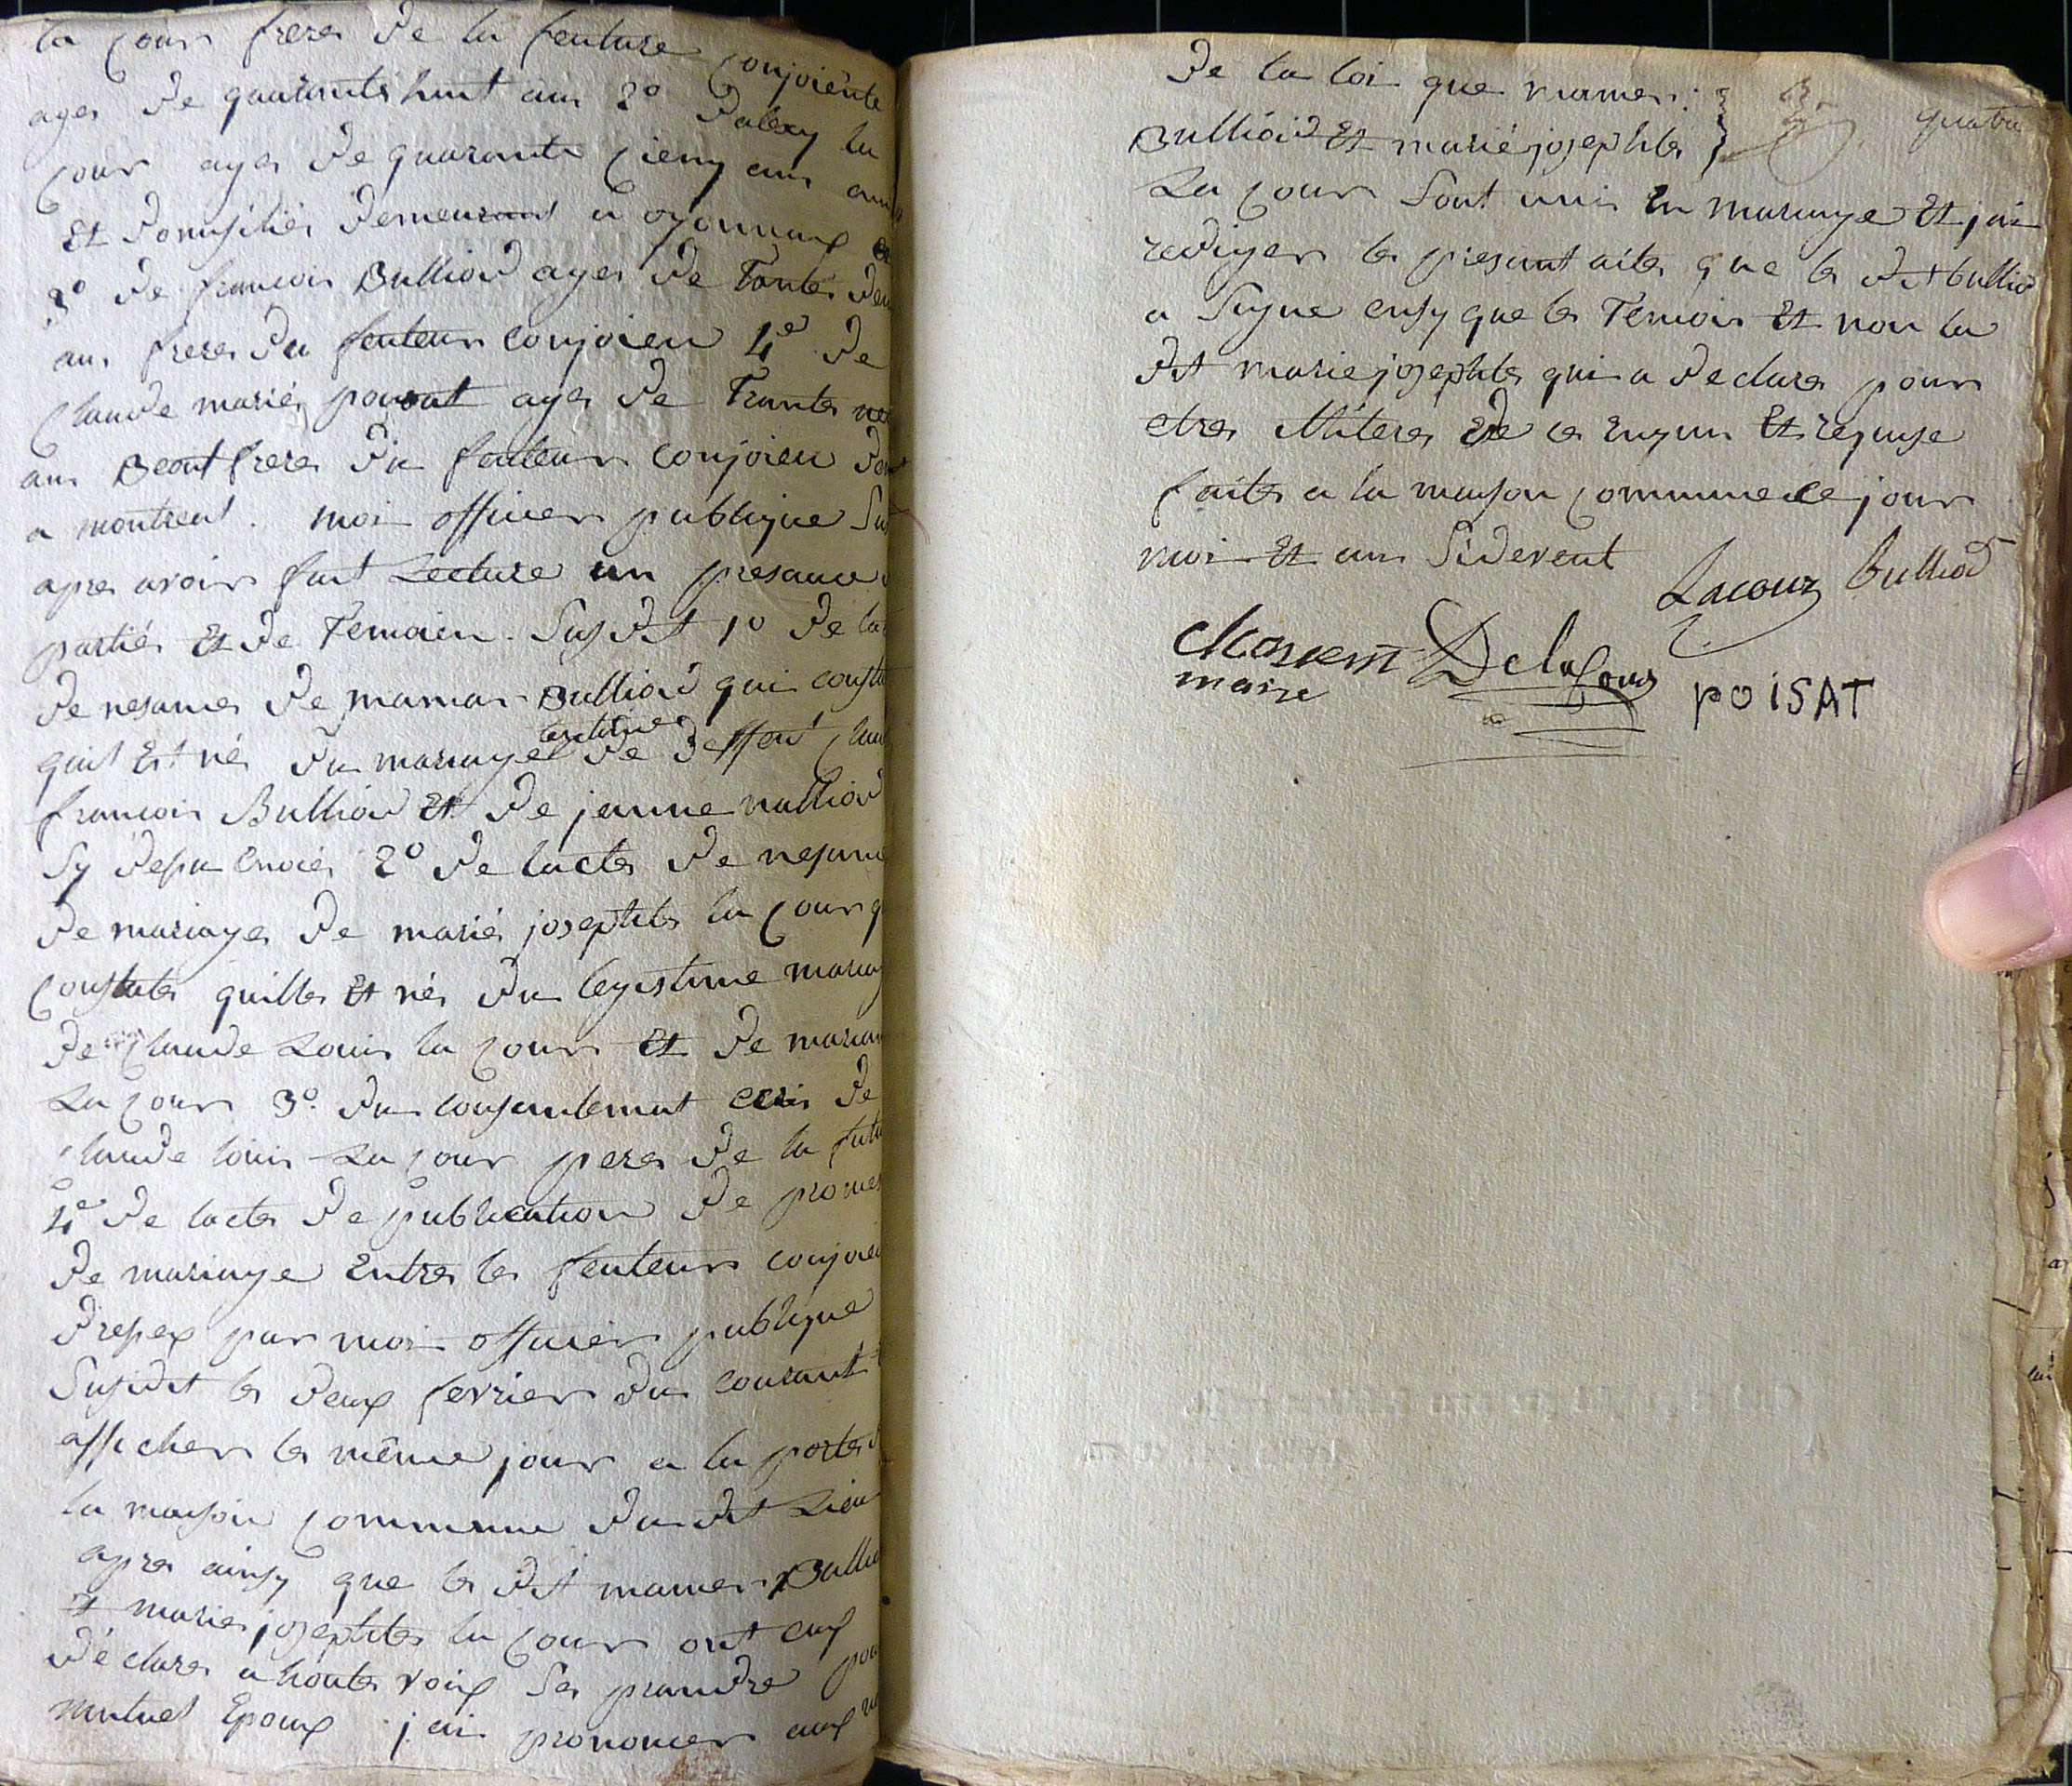 la cour freres de la feuture conjoiente
ages de quarante huit ans 2º dalexy la
cour ages de quarante cienq ans
Et domisiliés demeurant a oyonnax
3º de francois Bulliod ages de Tantes
ans freres du feuteur conjoien 4e de
Claude maries poisat ages de Trantes
ans Beautfreres du feuteur conjoien
a montreal. moi officier publique
apres avoir fait Lecture an presance
partiés Et de Temoien. Susdit 1º de
de nesances de mamer Bulliod qui
quil Et né du mariage legistime de deffent
francois Bullio d Et de jeanne nalliod
Sy depu Enoiés 2º de lactes de
de mariages de mariés josephtes la Cour
Constates quilles Et nés du legistime
de Claude Louis la Cour Et de
La Cour 3º du consentement ecris de
Claude louis La Cour peres de la
4e de lactes de publication de
de mariage Entres les feuteur
dresex par moi officier publique
Susdit les deux fevrier du courant
afficher les même jour a la portes
la maison Commune dudit Lieu
apres ainsy que les dit mamer
Et maries josephtes la Cour ont
déclares a houtes voix Ses prandre
mutuel Epoux jai prononcer
De la loi que mamer
quatre
Bulliod Et mariéjosephtes
La Cour Sont unis En mariage Et jai
rediger les presant actes que les dit bulliod
a Signe ensy que les Temoin Et non la
dit mariejosephtes qui a declares pour
etres illiteres de ces Enquis Et requise
faites a la maison Commune ce jour
moi Et ans Sidevent
Lacour bulliod
maire
Delacour
POISAT